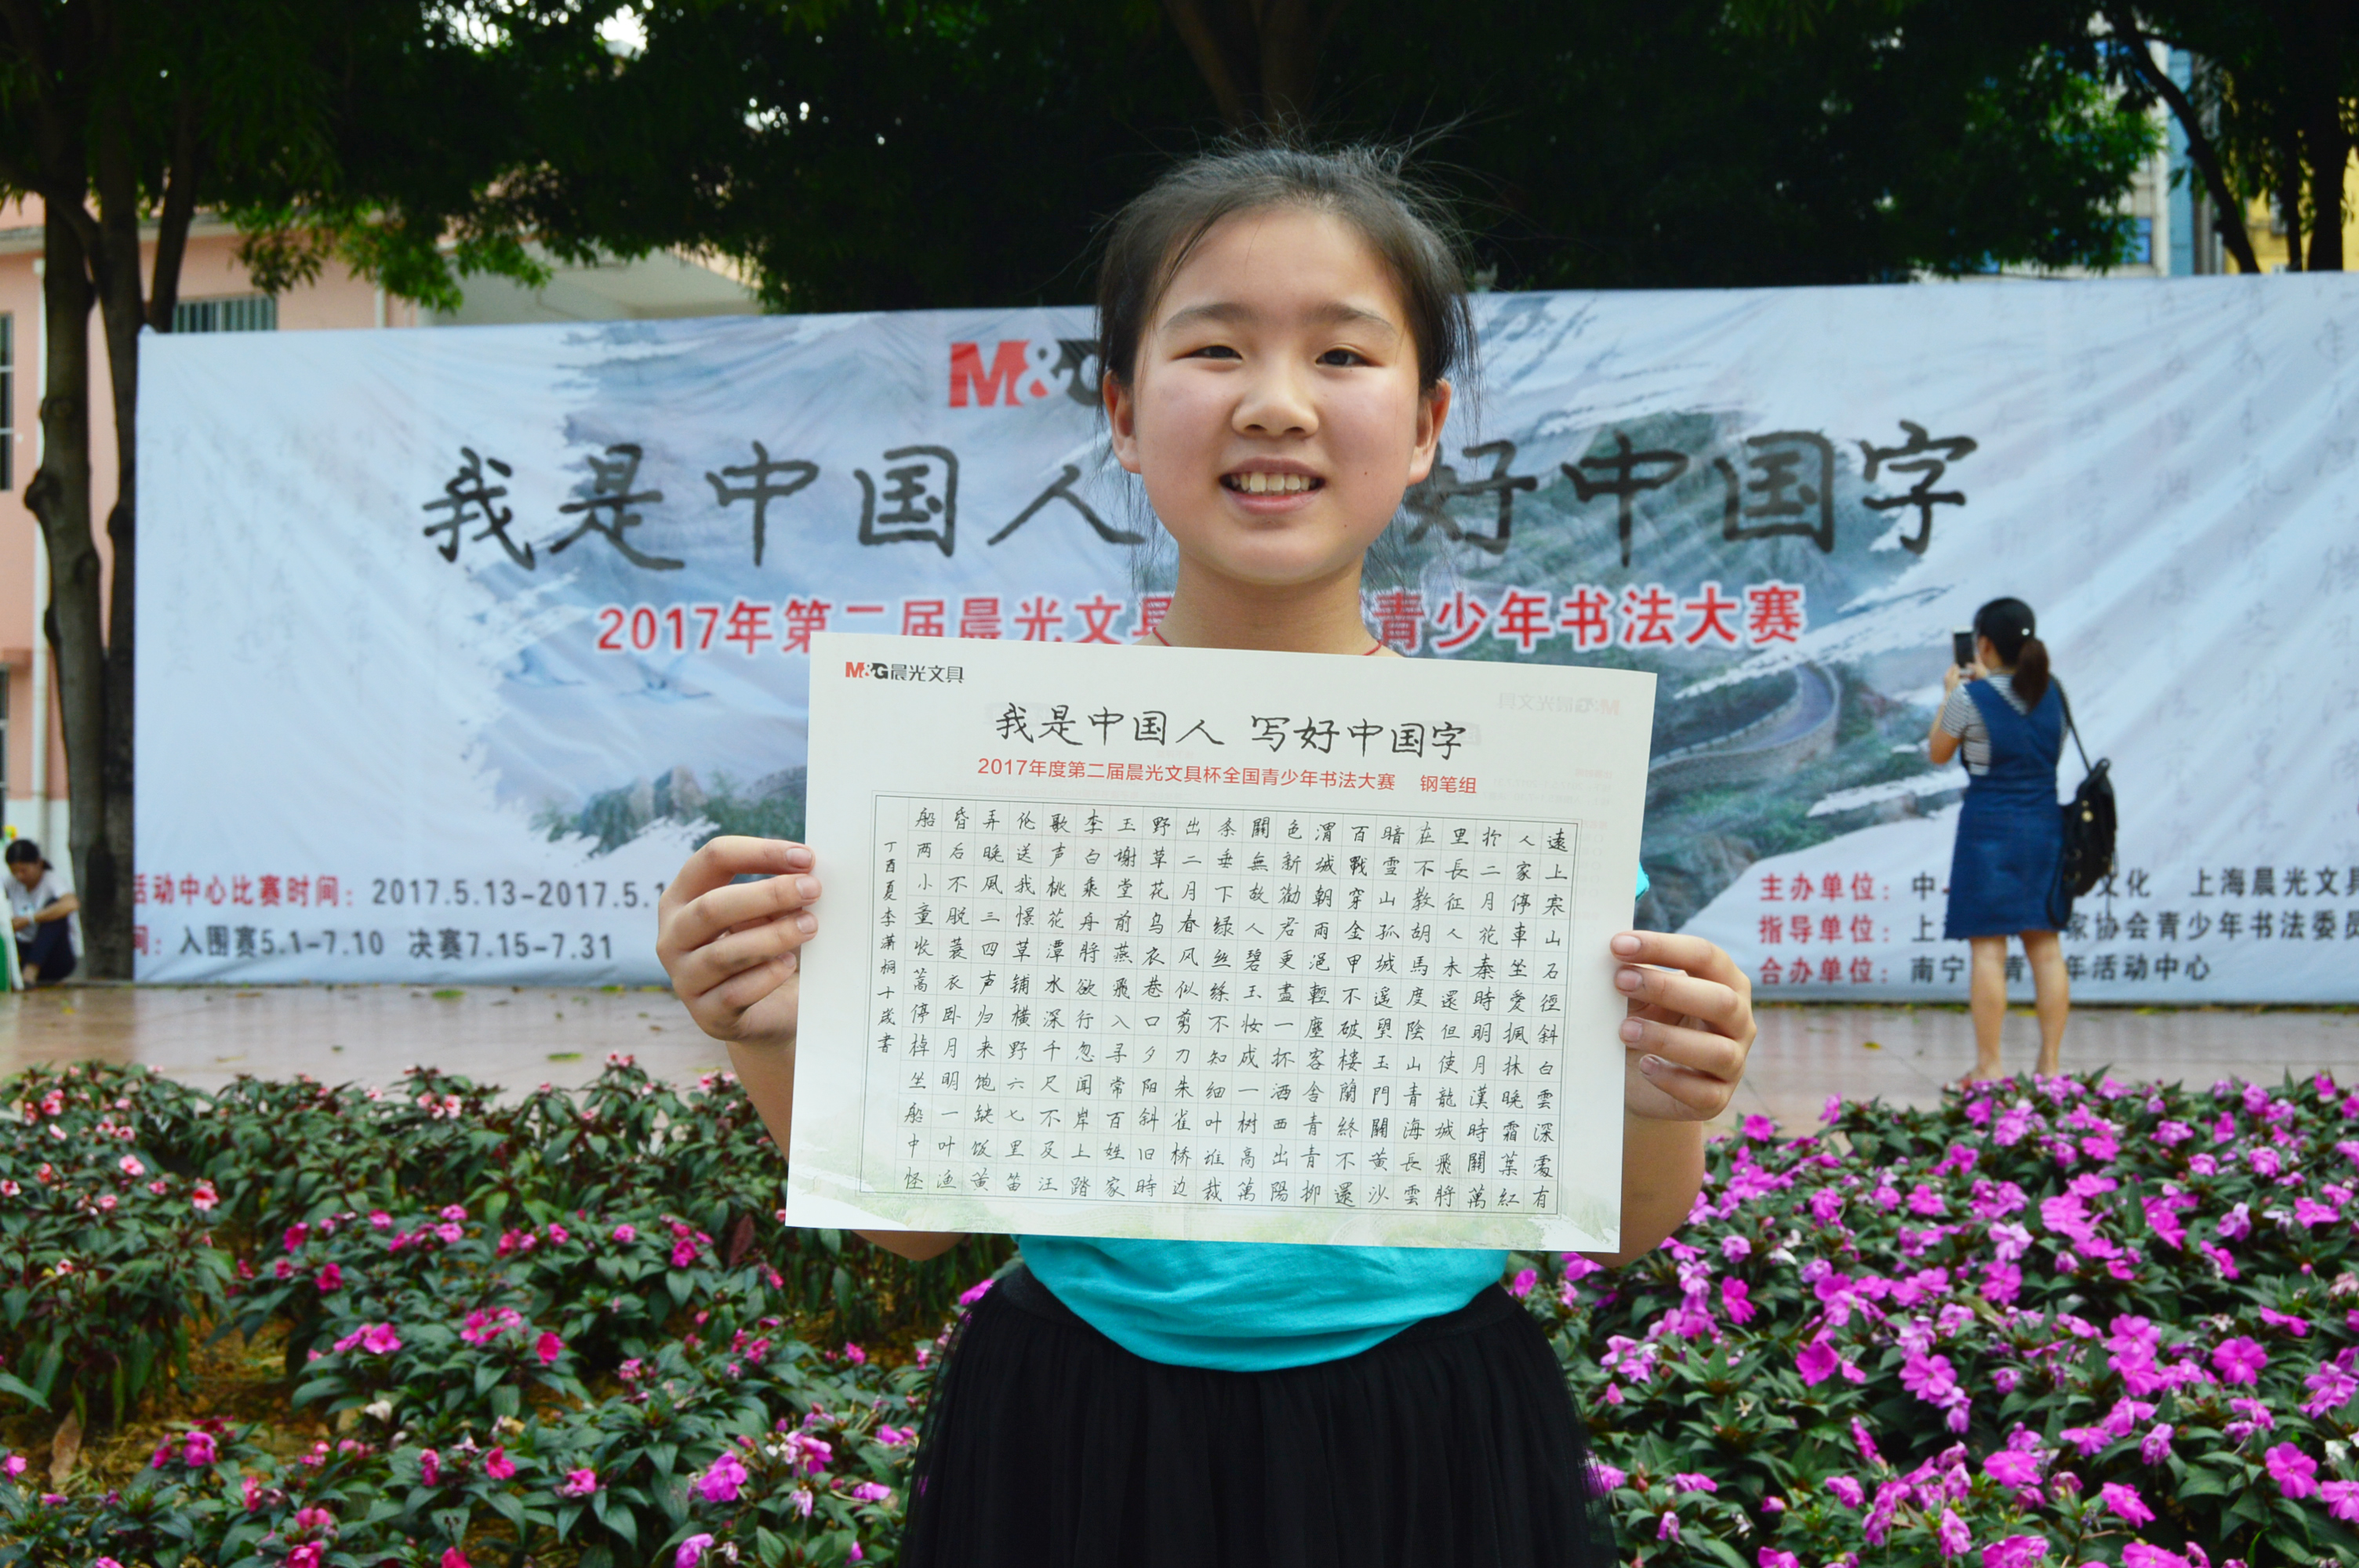 M&G
我是中国人 好中国字
2017年第二届晨光文具 青少年书法大赛
活动中心比赛时间：2017.5.13-2017.5.1
间：入围赛5.1-7.10 决赛7.15-7.31
主办单位：中 文化 上海晨光文具
指导单位：上 家协会青少年书法委员
合办单位：南宁 青 年活动中心
M&G晨光文具
我是中国人 写好中国字
2017年度第二届晨光文具杯全国青少年书法大赛 钢笔组
遠上寒山石徑斜白雲深處有
人家停車坐愛楓林晚霜葉紅
於二月花秦時明月漢時關萬
里長征人未還但使龍城飛將
在不教胡馬度陰山青海長雲
暗雪山孤城遙望玉門關黃沙
百戰穿金甲不破樓蘭終不還
渭城朝雨浥輕塵客舍青青柳
色新勸君更盡一杯酒西出陽
關無故人碧玉妆成一树高萬
条垂下绿丝绦不知细叶谁裁
出二月春风似剪刀朱雀桥边
野草花乌衣巷口夕阳斜旧時
王榭堂前燕飛入寻常百姓家
李白乘舟將欲行忽闻岸上踏
歌声桃花潭水深千尺不及汪
伦送我憬草铺横野六七里笛
弄晚風三四声归来饱缺饭黄
昏后不脱蓑衣卧月明一叶渔
船两小童收蒿停棹坐船中怪
丁酉夏李潇桐十岁書